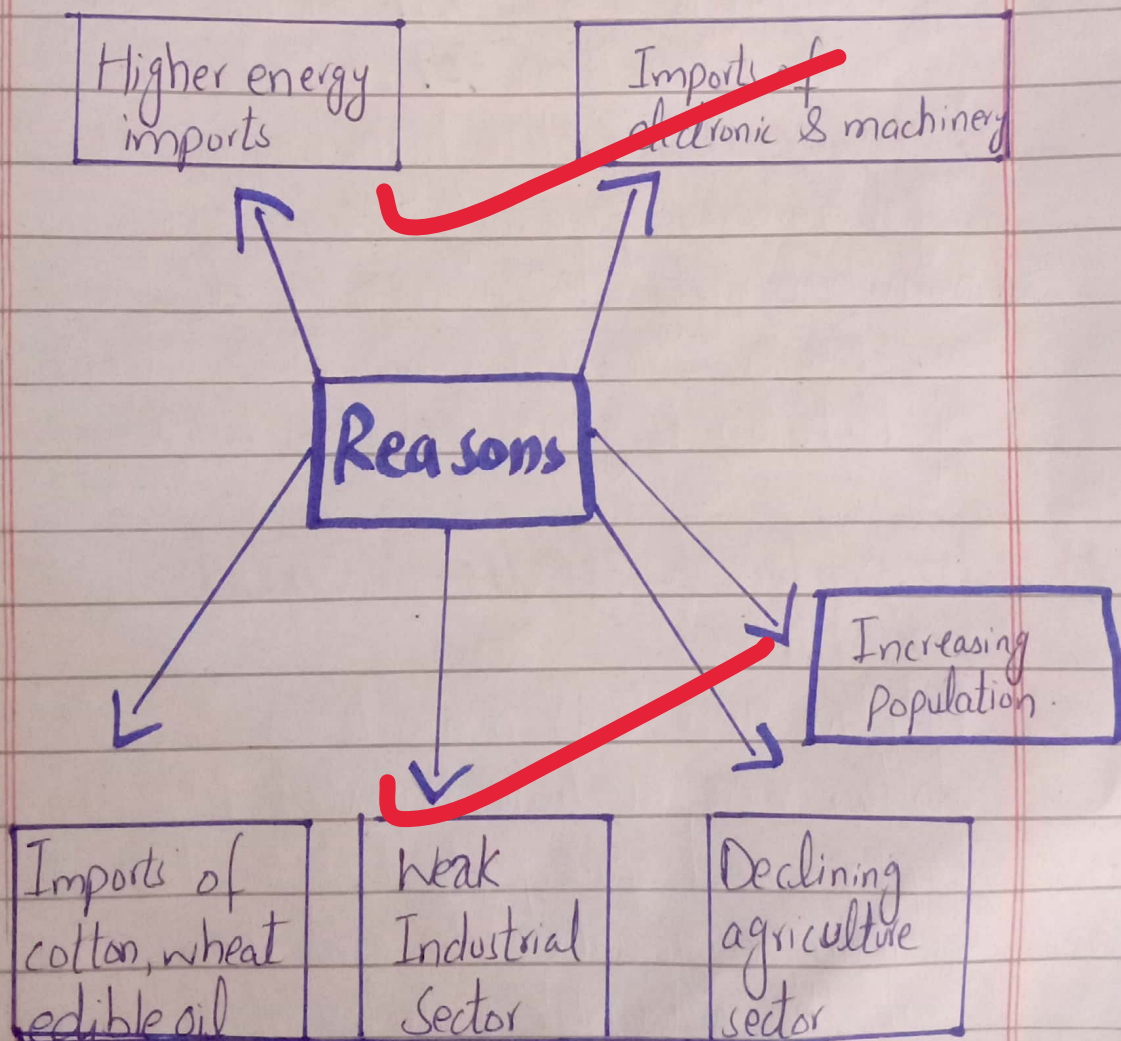 Higher energy
imports
Imports of
electronic & machinery
Reasons
Increasing
population.
Imports of
cotton, wheat
edible oil
Weak
Industrial
Sector
Declining
agriculture
sector